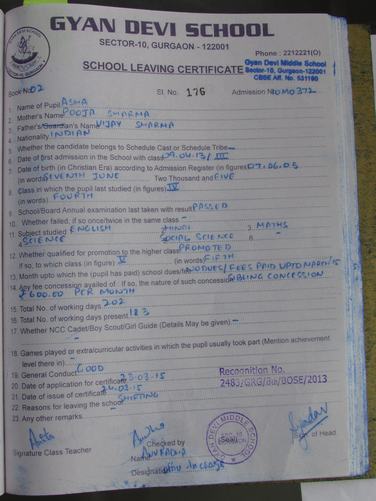 GYAN DEVI SCHOOL
SECTOR-10, GURGAON - 122001
Phone : 2212221(O)
SCHOOL LEAVING CERTIFICATE
Gyan Devi Middle School
Sector-10, Gurgaon-122001
CBSE Aff. No. 531190
Book No. 02 Sl. No. 176 Admission No MO372
1. Name of Pupil ASHA
2. Mother's Name POOJA SHARMA
3. Father's/Guardian's Name VIJAY SHARMA
4. Nationality INDIAN
5. Whether the candidate belongs to Schedule Cast or Schedule Tribe –
6. Date of first admission in the School with class 09.04.13/III
7. Date of birth (in Christian Era) according to Admission Register (in figures) 07.06.05
(in words) SEVENTH JUNE Two Thousand and FIVE
8. Class in which the pupil last studied (in figures) IV
(in words) FOURTH
9. School/Board Annual examination last taken with result PASSED
10. Whether failed, if so once/twice in the same class –
11. Subject studied 1. ENGLISH 2. HINDI 3. MATHS
4. SCIENCE 5. SOCIAL SCIENCE 6. –
12. Whether qualified for promotion to the higher class PROMOTED
If so, to which class (in figure) V (in words) FIFTH
13. Month upto which the (pupil has paid) school dues/fee NO DUES/FEES PAID UPTO MARCH/15
14. Any fee concession availed of. If so, the nature of such concession SIBLING CONCESSION
₹ 600.00 PER MONTH
15. Total No. of working days 202
16. Total No. of working days present 183
17. Whether NCC Cadet/Boy Scout/Girl Guide (Details May be given) –
18. Games played or extra/curricular activities in which the pupil usually took part (Mention achievement
level there in) –
19. General Conduct GOOD
20. Date of application for certificate 23-03-15
21. Date of issue of certificate 24-03-15
22. Reasons for leaving the school SHIFTING
23. Any other remarks
Recognition No.
2483/GRG/8th/BOSE/2013
GYAN DEVI MIDDLE SCHOOL
(Seal)
Signature Class Teacher
Checked by
Name ANURADHA
Designation Office Incharge
Sign. of Head